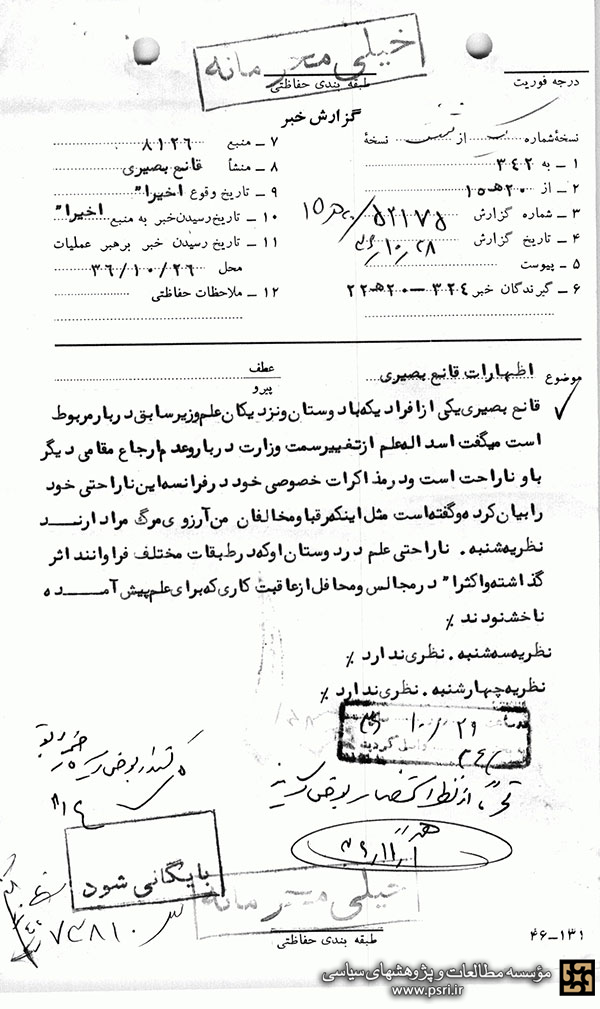 خیلی محرمانه
طبقه بندی حفاظتی
درجه فوریت
گزارش خبر
نسخهٔ شماره یک از نسخهٔ
۱ ـ به ۳۴۲
۲ ـ از ۲۰ هـ ۱۵
۳ ـ شماره گزارش ۵۲۱۷۵/۲۰ هـ ۱۵
۴ ـ تاریخ گزارش ۳۶/۱۰/۲۸
۵ ـ پیوست
۶ ـ گیرندگان خبر ۳۲۴ــ۲۰ هـ ۲۲
۷ ـ منبع ۸۱۲۶
۸ ـ منشأ قانع بصیری
۹ ـ تاریخ وقوع اخیرا"
۱۰ ـ تاریخ رسیدن خبر به منبع اخیرا"
۱۱ ـ تاریخ رسیدن خبر برهبر عملیات
محل ۳۶/۱۰/۲۶
۱۲ ـ ملاحظات حفاظتی
موضوع اظهارات قانع بصیری
عطف
پیرو
قانع بصیری یکی از افرادیکه با دوستان و نزدیکان علم وزیر سابق دربار مربوط
است میگفت اسداله علم از تغییر سمت وزارت دربار و عدم ارجاع مقامی دیگر
باو ناراحت است و در مذاکرات خصوصی خود در فرانسه این ناراحتی خود
را بیان کرده و گفته است مثل اینکه رقبا و مخالفان من آرزوی مرگ مرا دارنـــد
نظریه شنبه . ناراحتی علم در دوستان او که در طبقات مختلف فراوانند اثر
گذاشته و اکثرا" در مجالس و محافل از عاقبت کاری که برای علم پیش آمــــده
ناخشنودند ٪
نظریه سه شنبه . نظری ندارد ٪
نظریه چهارشنبه . نظری ندارد ٪
۱۰/۲۹
بایگانی شود
خیلی محرمانه
طبقه بندی حفاظتی
۷۳۸۱۰
۴۶ــ۱۳۱
مؤسسه مطالعات و پژوهشهای سیاسی
www.psri.ir